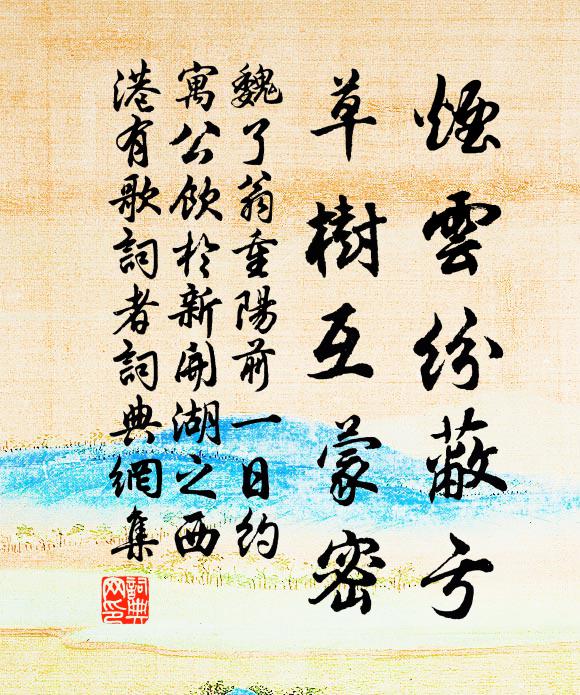 煙雲紛蔽亏
草樹互蒙密
魏了翁重陽前一日約
寓公飲於新開湖之西
港有歌詞者詞典網集
詞典
网印